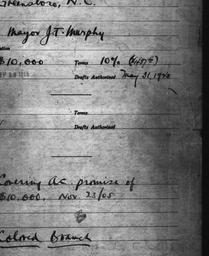 Greensboro, N.C.
Mayor J.T. Murphy
$10,000 Terms 10%
Drafts Authorized May 31, 1920
Terms
Drafts Authorized
Covering a/c. promise of
$10,000. Nov 23/05
Colored Branch